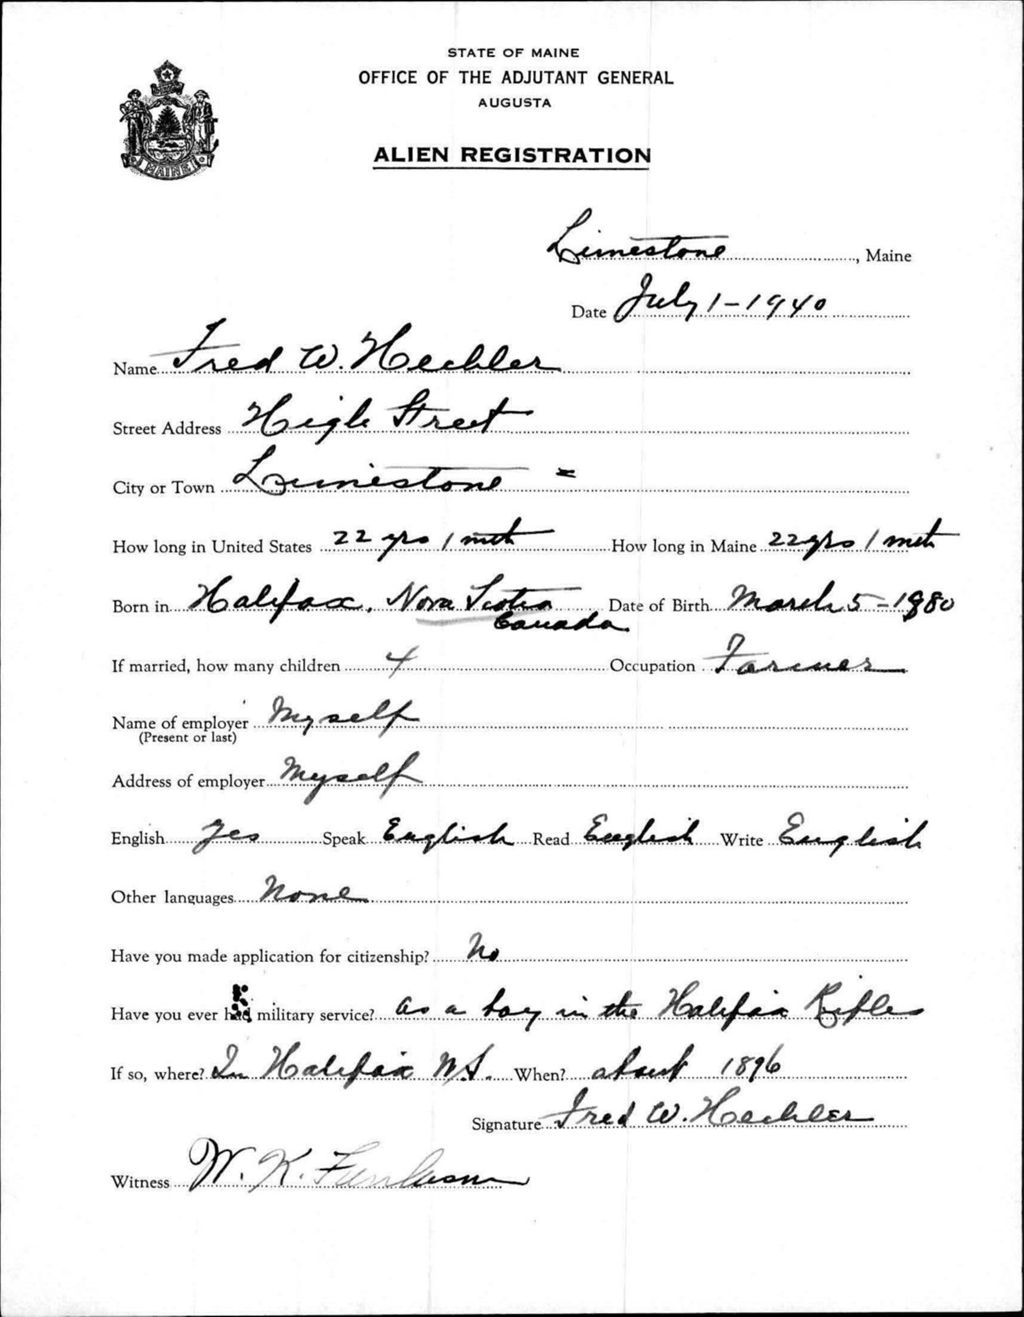 STATE OF MAINE
OFFICE OF THE ADJUTANT GENERAL
AUGUSTA
ALIEN REGISTRATION
MAINE
Limestone, Maine
Date July 1-1940
Name Fred W. Hechler
Street Address High Street
City or Town Limestone =
How long in United States 22 yrs 1 mth How long in Maine 22 yrs 1 mth
Born in Halifax, Nova Scotia Canada Date of Birth March 5-1880
If married, how many children 4 Occupation Farmer
Name of employer Myself
(Present or last)
Address of employer Myself
English Yes Speak English Read English Write English
Other languages None
Have you made application for citizenship? No
Have you ever had military service? as a boy in the Halifax Rifles
If so, where? In Halifax N.S. When? about 1896
Signature Fred W. Hechler
Witness W. K.